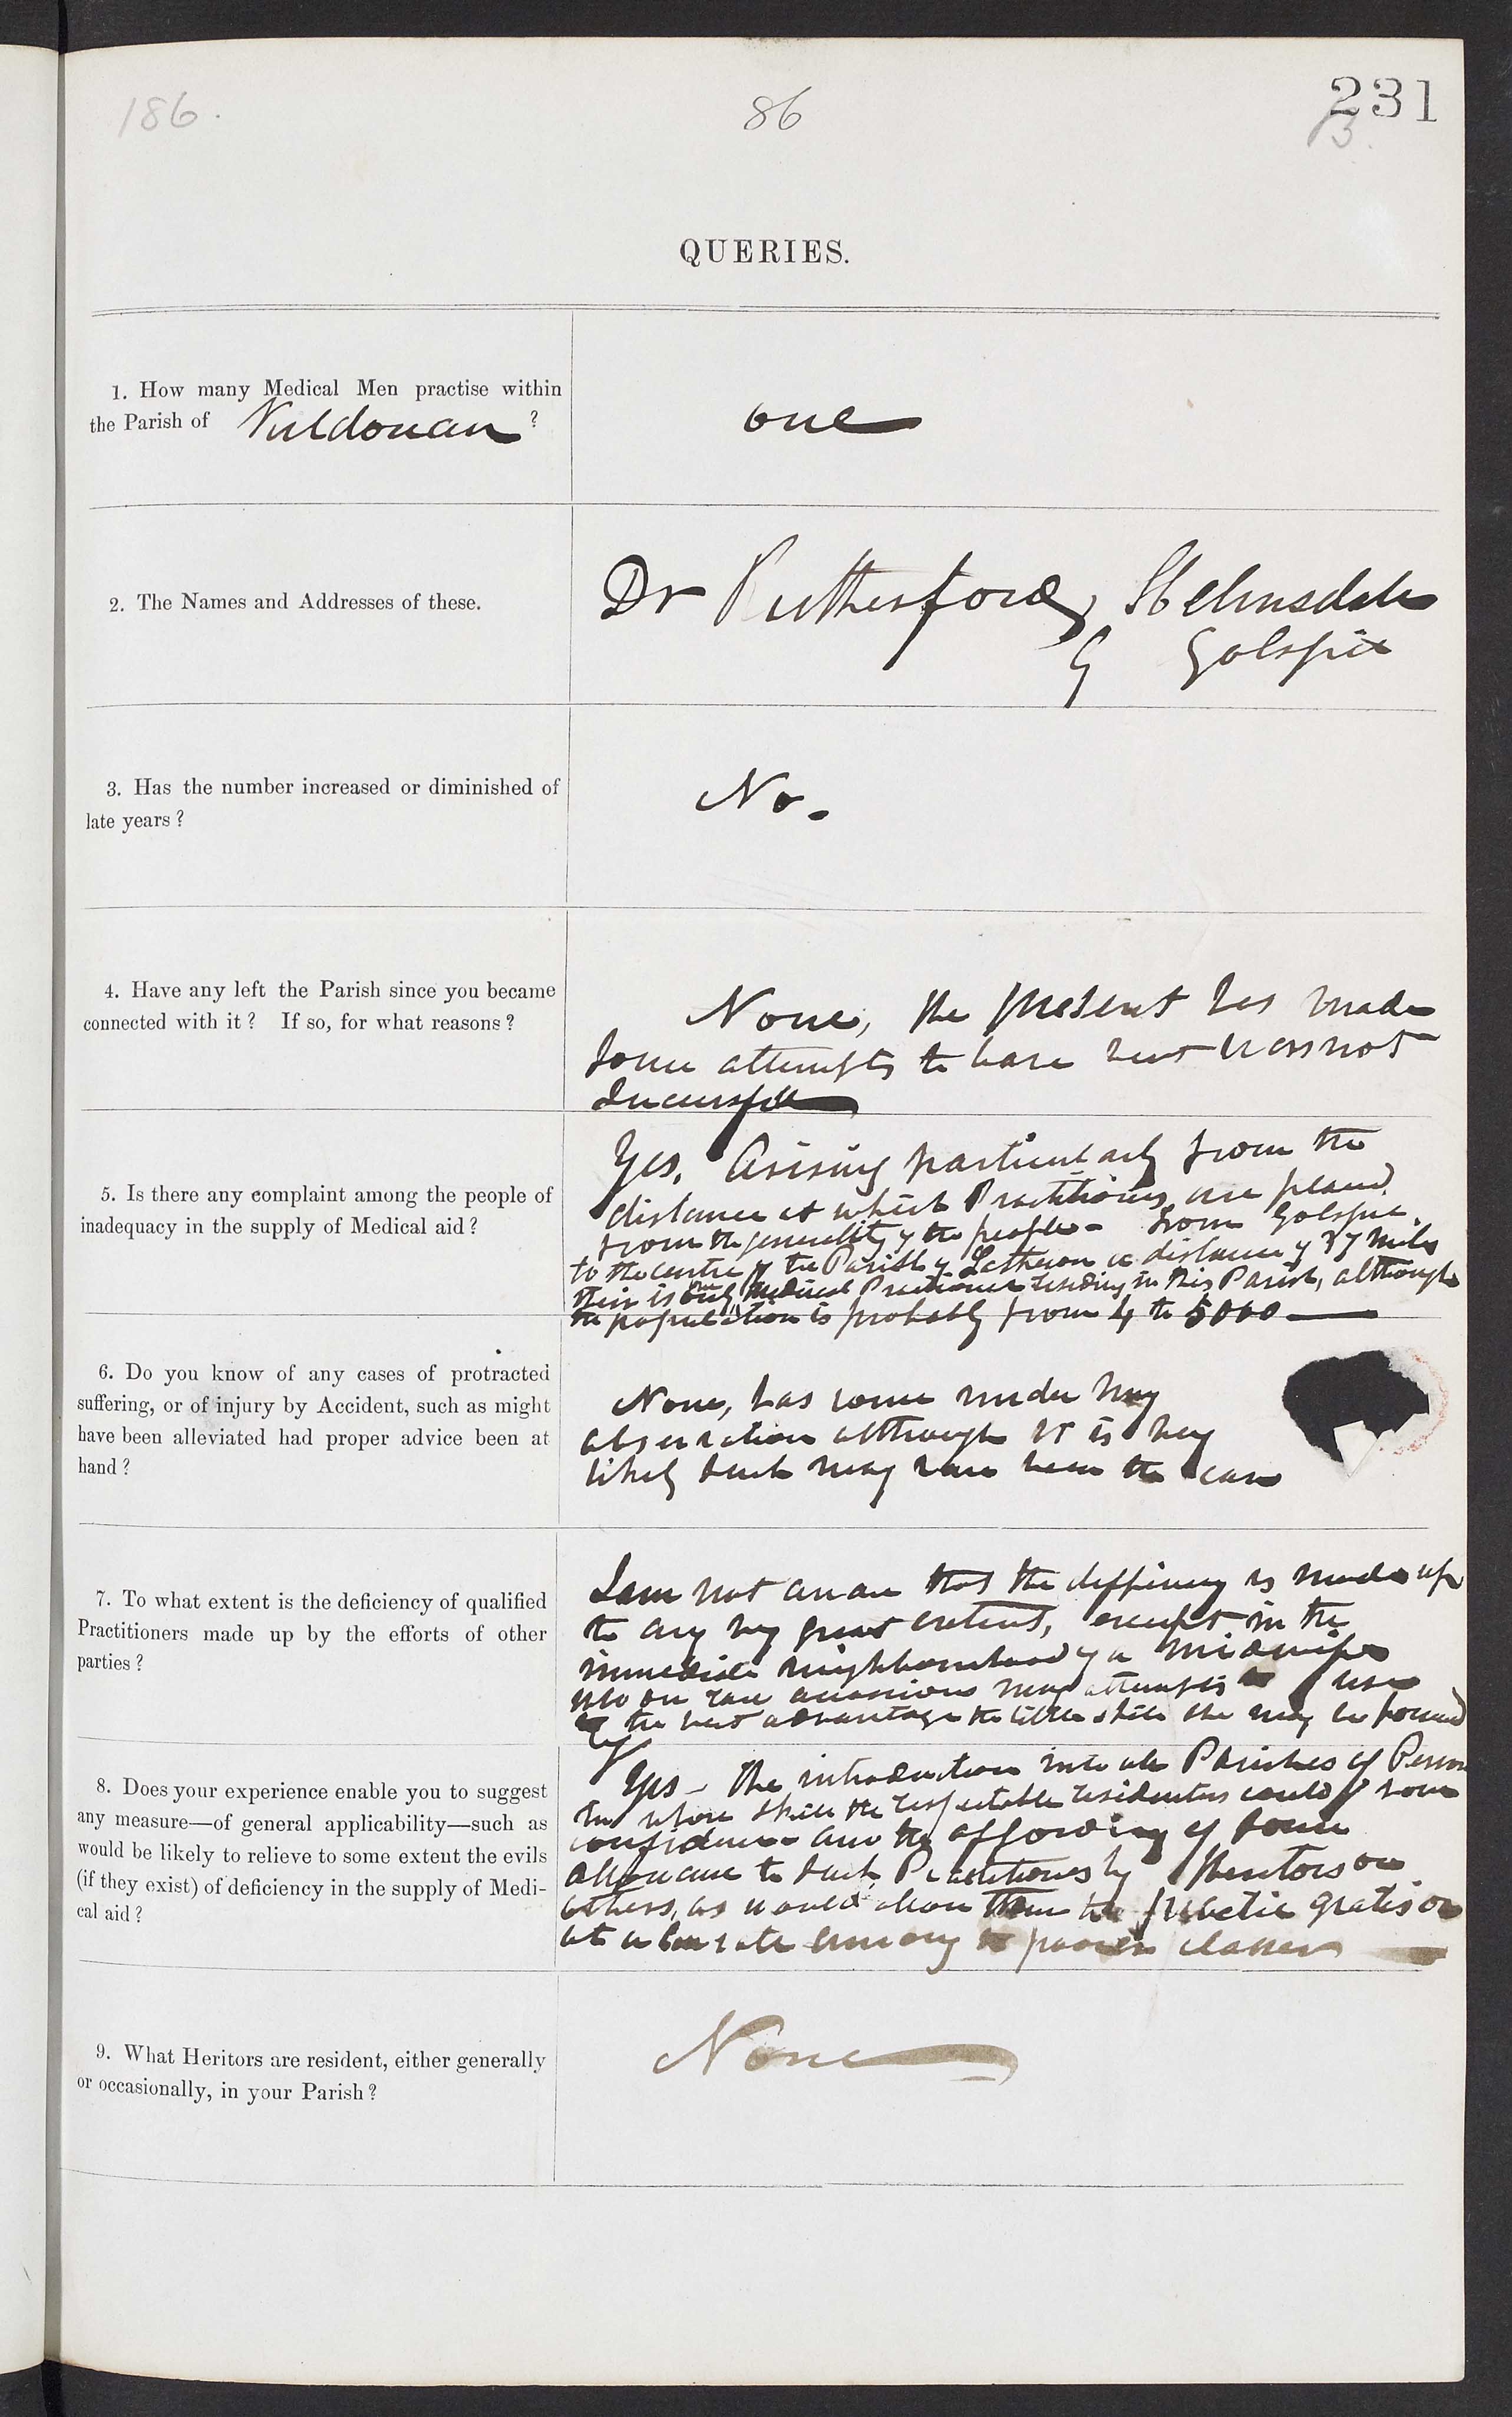 186.
86
231
13.
QUERIES.
1. How many Medical Men practise within
the Parish of Kildonan ?
one
2. The Names and Addresses of these.
Dr Rutherford, Helmsdale
Golspie
3. Has the number increased or diminished of
late years ?
No.
4. Have any left the Parish since you became
connected with it ? If so, for what reasons ?
None, the present has made
some attempts to leave but was not
5. Is there any complaint among the people of
inadequacy in the supply of Medical aid ?
Yes. Arising particularly from the
distance at which Practitioners are placed
from the generality of the people - From Golspie
to the centre of the Parish of Latheron a distance of 37 miles
their is only one Medical Practitioner residing in this Parish, although
the population is probably from 4 to 5000
6. Do you know of any cases of protracted
suffering, or of injury by Accident, such as might
have been alleviated had proper advice been at
hand ?
None, has come under my
observation although it is very
likely such may have been the case
7. To what extent is the deficiency of qualified
Practitioners made up by the efforts of other
parties ?
I am not aware that the is made up
to any very great extent, except in the
immediate neighbourhood of a midwife
who on rare occasions may attempts to use
to the best advantage the little skill she may be possessed
of
8. Does your experience enable you to suggest
any measure—of general applicability—such as
would be likely to relieve to some extent the evils
(if they exist) of deficiency in the supply of Medi-
cal aid ?
Yes - The introduction into all Parishes of Persons
in whose skill the respectable residenters could have
confidence and the affording of some
allowance to such Practitioners by Heritors or
others, as would allow them to practice gratis or
at a low rate among the poorer classes
9. What Heritors are resident, either generally
or occasionally, in your Parish ?
None